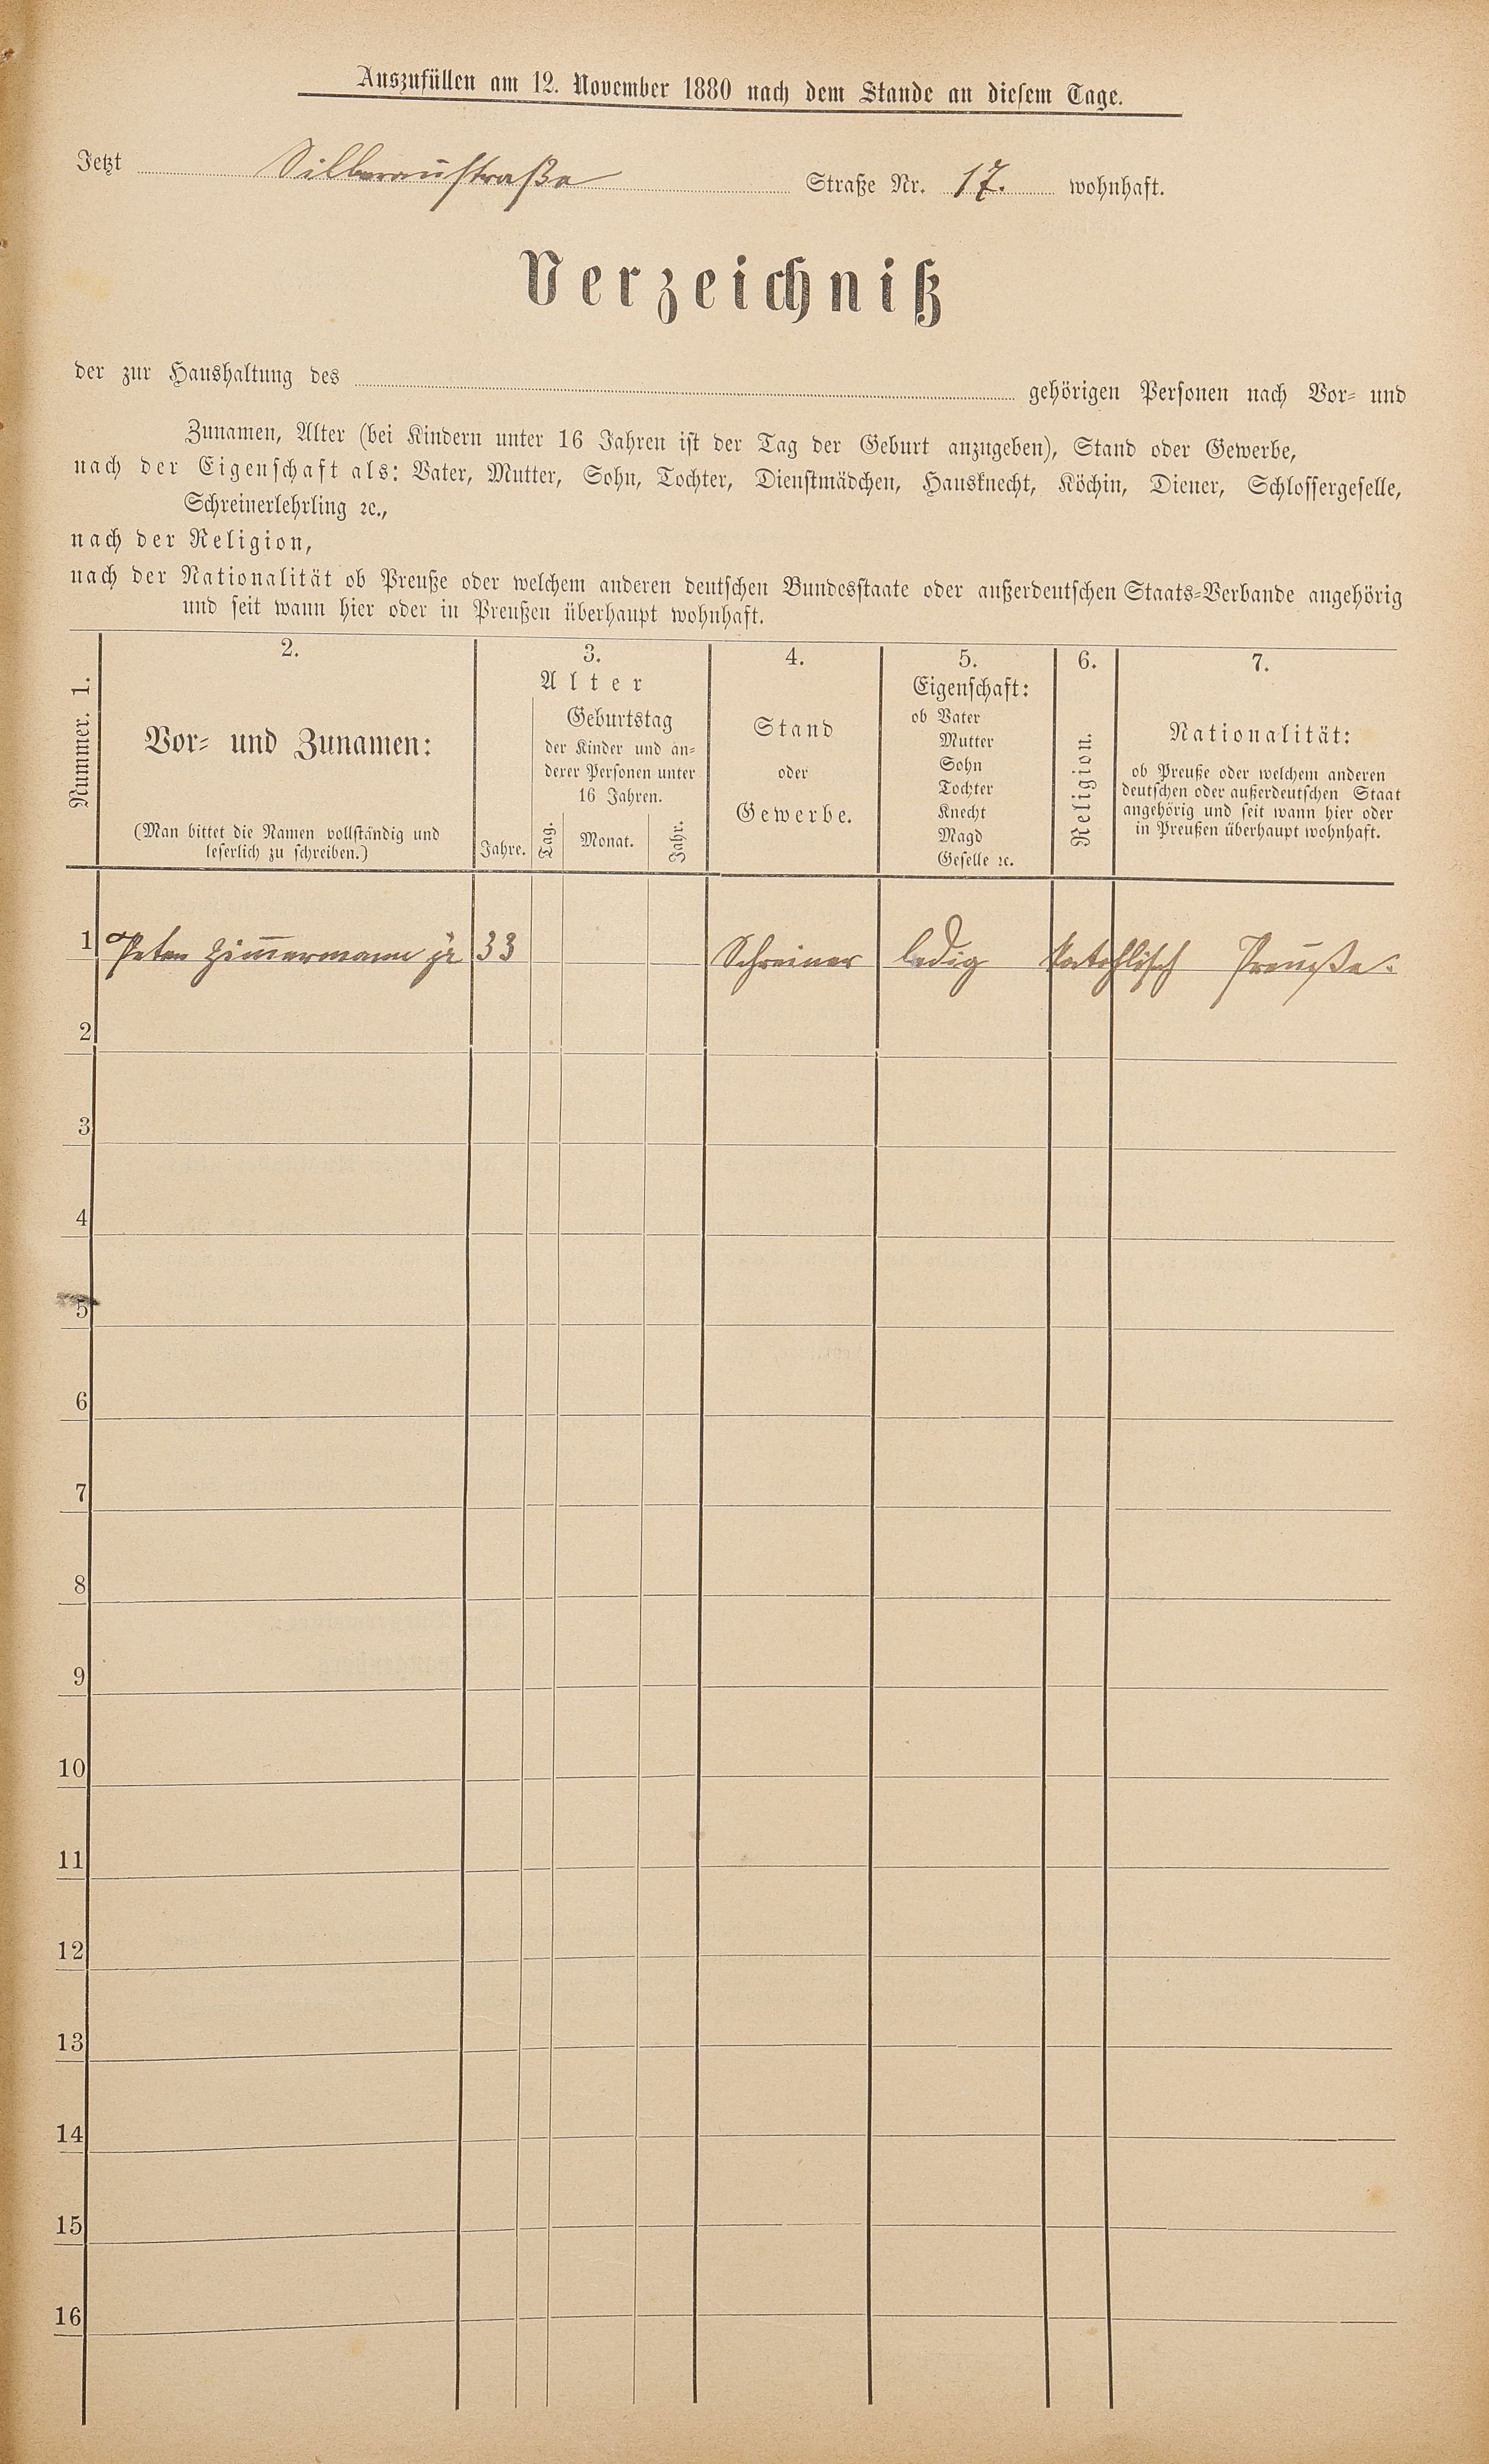 Auszufüllen am 12. November 1880 nach dem Stande an diesem Tage.
Jetzt Silberaustraße Straße Nr. 17. wohnhaft.
Verzeichniß
der zur Haushaltung des gehörigen Personen nach Vor- und
Zunamen, Alter (bei Kindern unter 16 Jahren ist der Tag der Geburt anzugeben), Stand oder Gewerbe,
nach der Eigenschaft als: Vater, Mutter, Sohn, Tochter, Dienstmädchen, Hausknecht, Köchin, Diener, Schlossergeselle,
Schreinerlehrling ꝛc.,
nach der Religion,
nach der Nationalität ob Preuße oder welchem anderen deutschen Bundesstaate oder außerdeutschen Staats-Verbande angehörig
und seit wann hier oder in Preußen überhaupt wohnhaft.
Nummer. 1.
2.
Vor- und Zunamen:
(Man bittet die Namen vollständig und
leserlich zu schreiben.)
3.
Alter
Jahre.
Geburtstag
der Kinder und an-
derer Personen unter
16 Jahren.
Tag.
Monat.
Jahr.
4.
Stand
oder
Gewerbe.
5.
Eigenschaft:
ob Vater
Mutter
Sohn
Tochter
Knecht
Magd
Geselle ꝛc.
6.
Religion.
7.
Nationalität:
ob Preuße oder welchem anderen
deutschen oder außerdeutschen Staat
angehörig und seit wann hier oder
in Preußen überhaupt wohnhaft.
1 Peter Zim̅ermann jr 33 Schreiner ledig katohlisch Preuße.
2
3
4
5
6
7
8
9
10
11
12
13
14
15
16